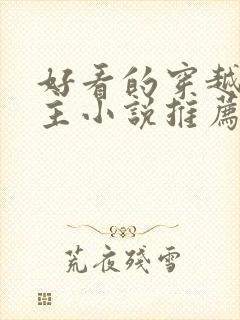 好看的穿越
主小說推薦
荒夜殘雪